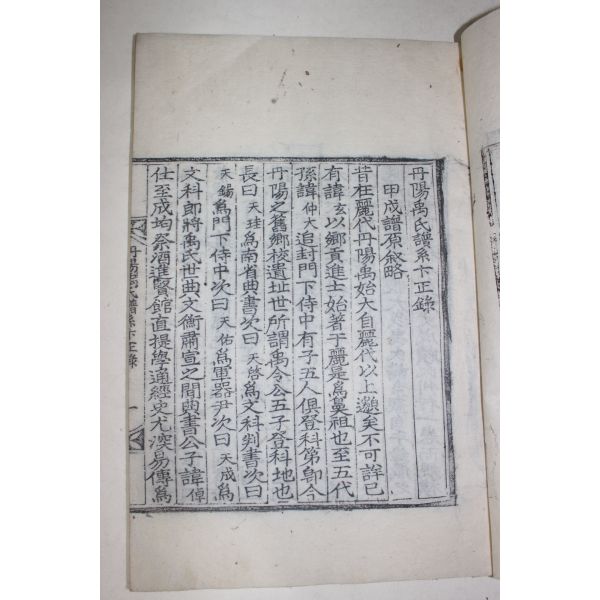 丹陽禹氏譜系卞正錄
甲戌譜原敘略
昔在麗代丹陽禹始大自麗代以上邈矣不可詳已
有諱玄以鄉貢進士始著于麗是爲鼻祖也至五代
孫諱仲大追封門下侍中有子五人俱登科第卽今
丹陽之舊鄉校遺址世所謂禹令公五子登科地也
長曰天珪爲南省典書次曰天啓爲文科判書次曰
天錫爲門下侍中次曰天佑爲軍器尹次曰天成爲
文科郎將禹氏世典文衡肅宣之間典書公子諱倬
仕至成均祭酒進賢館直提學通經史尤深易傳爲
丹陽禹氏譜系卞正錄 一